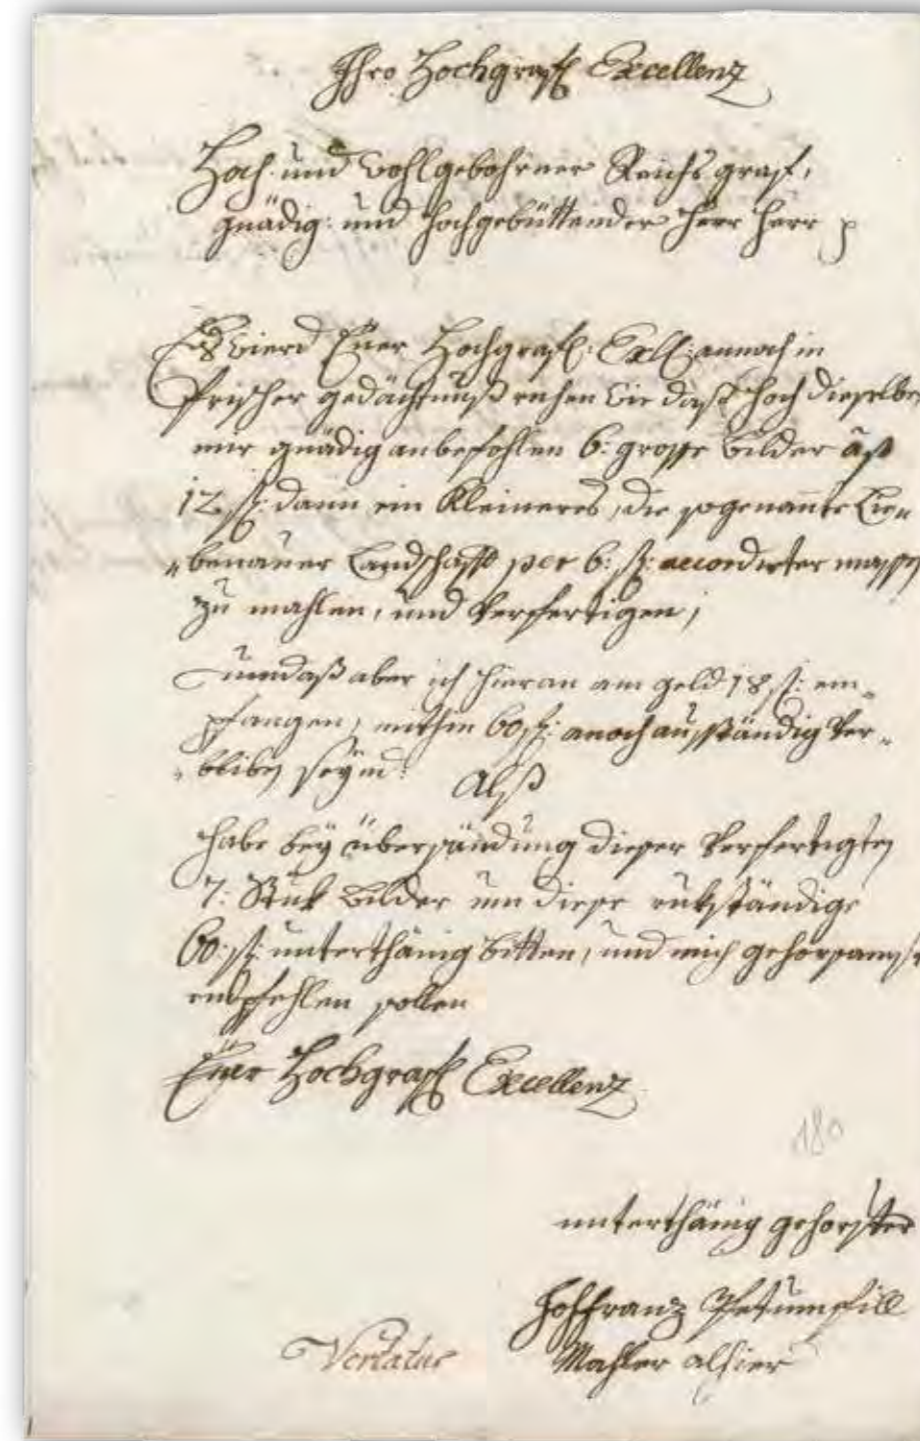 Ihro Hochgräfl Excellenz
Hoch- und Wohlgebohrner Reichs graf,
gnädig: und Hochgebüttender Herr Herr p
Es wierd Euer Hochgräfl: Exll: annoch in
frischer gedächtnuß ruhen wie daß hoch dieselben
mir gnädig anbefohlen 6: grosse bilder à
12 f: dann ein Kleineres, die sogenante Lie„
„benauer Landschafft per 6: f: accordirter massen
zu mahlen, und verfertigen;
Umdaß aber ich hieran am geld 18 f: em„
pfangen, mithin 60 f: anoch ausständig ver„
„bliben seynd: Alß
habe bey übersändung dieser verfertigten
7: Stuk bilder um diese rukständige
60: f: unterthänig bitten, und mich gehorsamst
empfehlen sollen
Euer Hochgräfl Excellenz
180
unterthänig gehorster
Franz
Mahler alhier
Vertatur